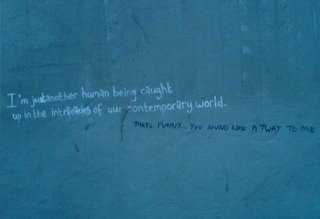 I'm just another human being caught
up in the intricacies of our contemporary world.
THATS FUNNY... YOU SOUND LIKE A TWAT TO ME